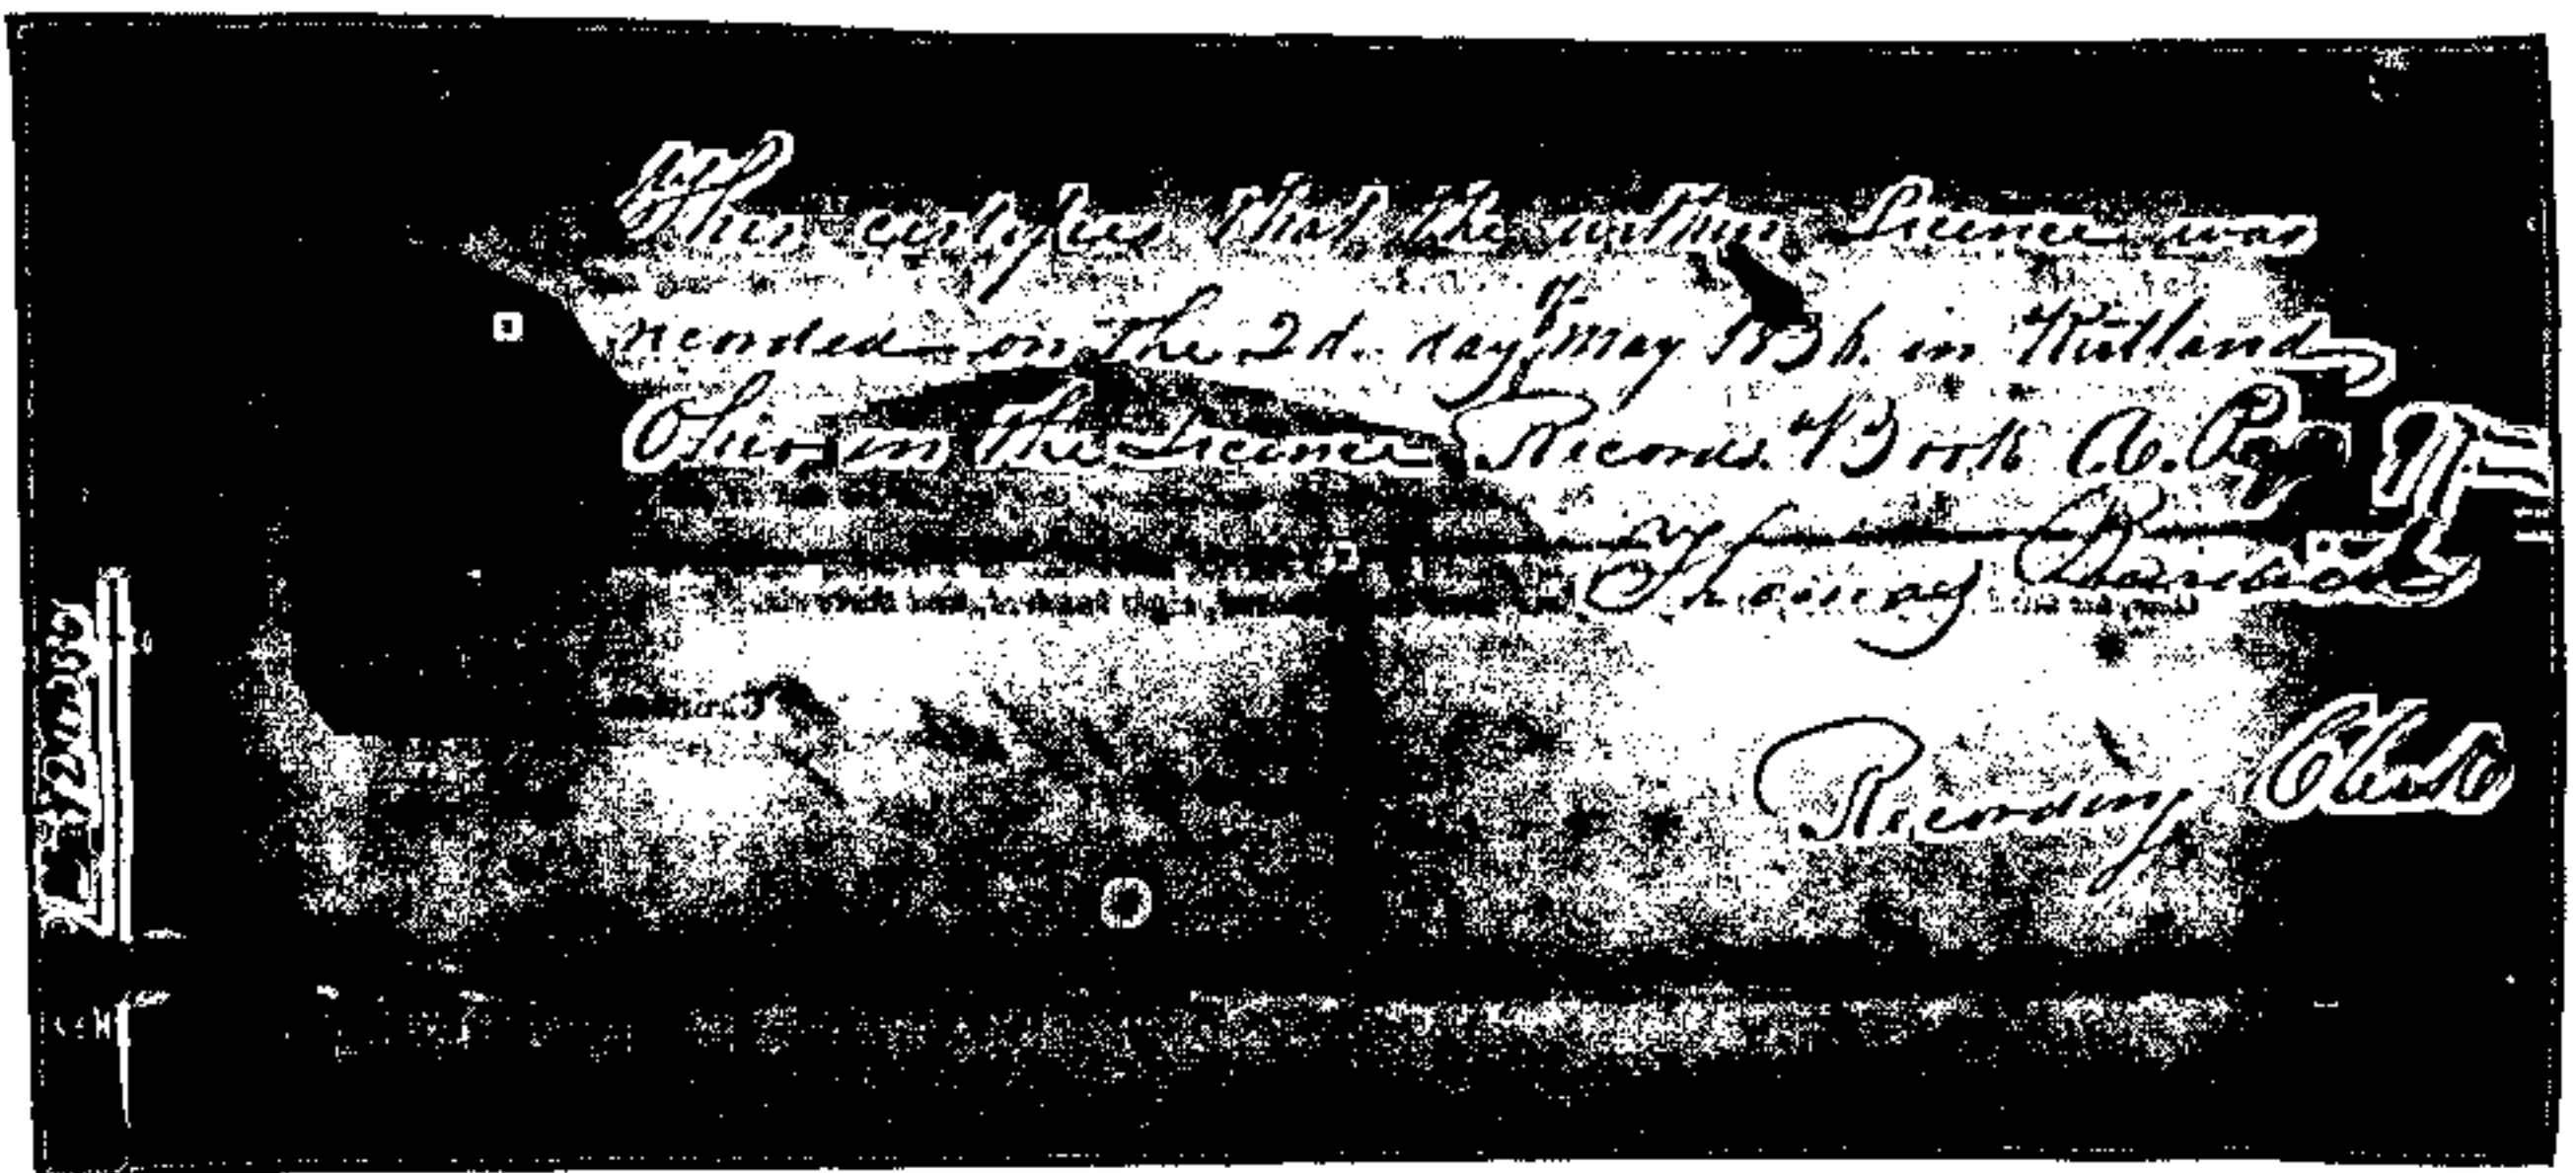 This certifies that the within License was
recorded on the 2d. day of May 1836. in Kirtland
Ohio in the License Records Book A. Page
Thomas Burdick
Recording Clerk